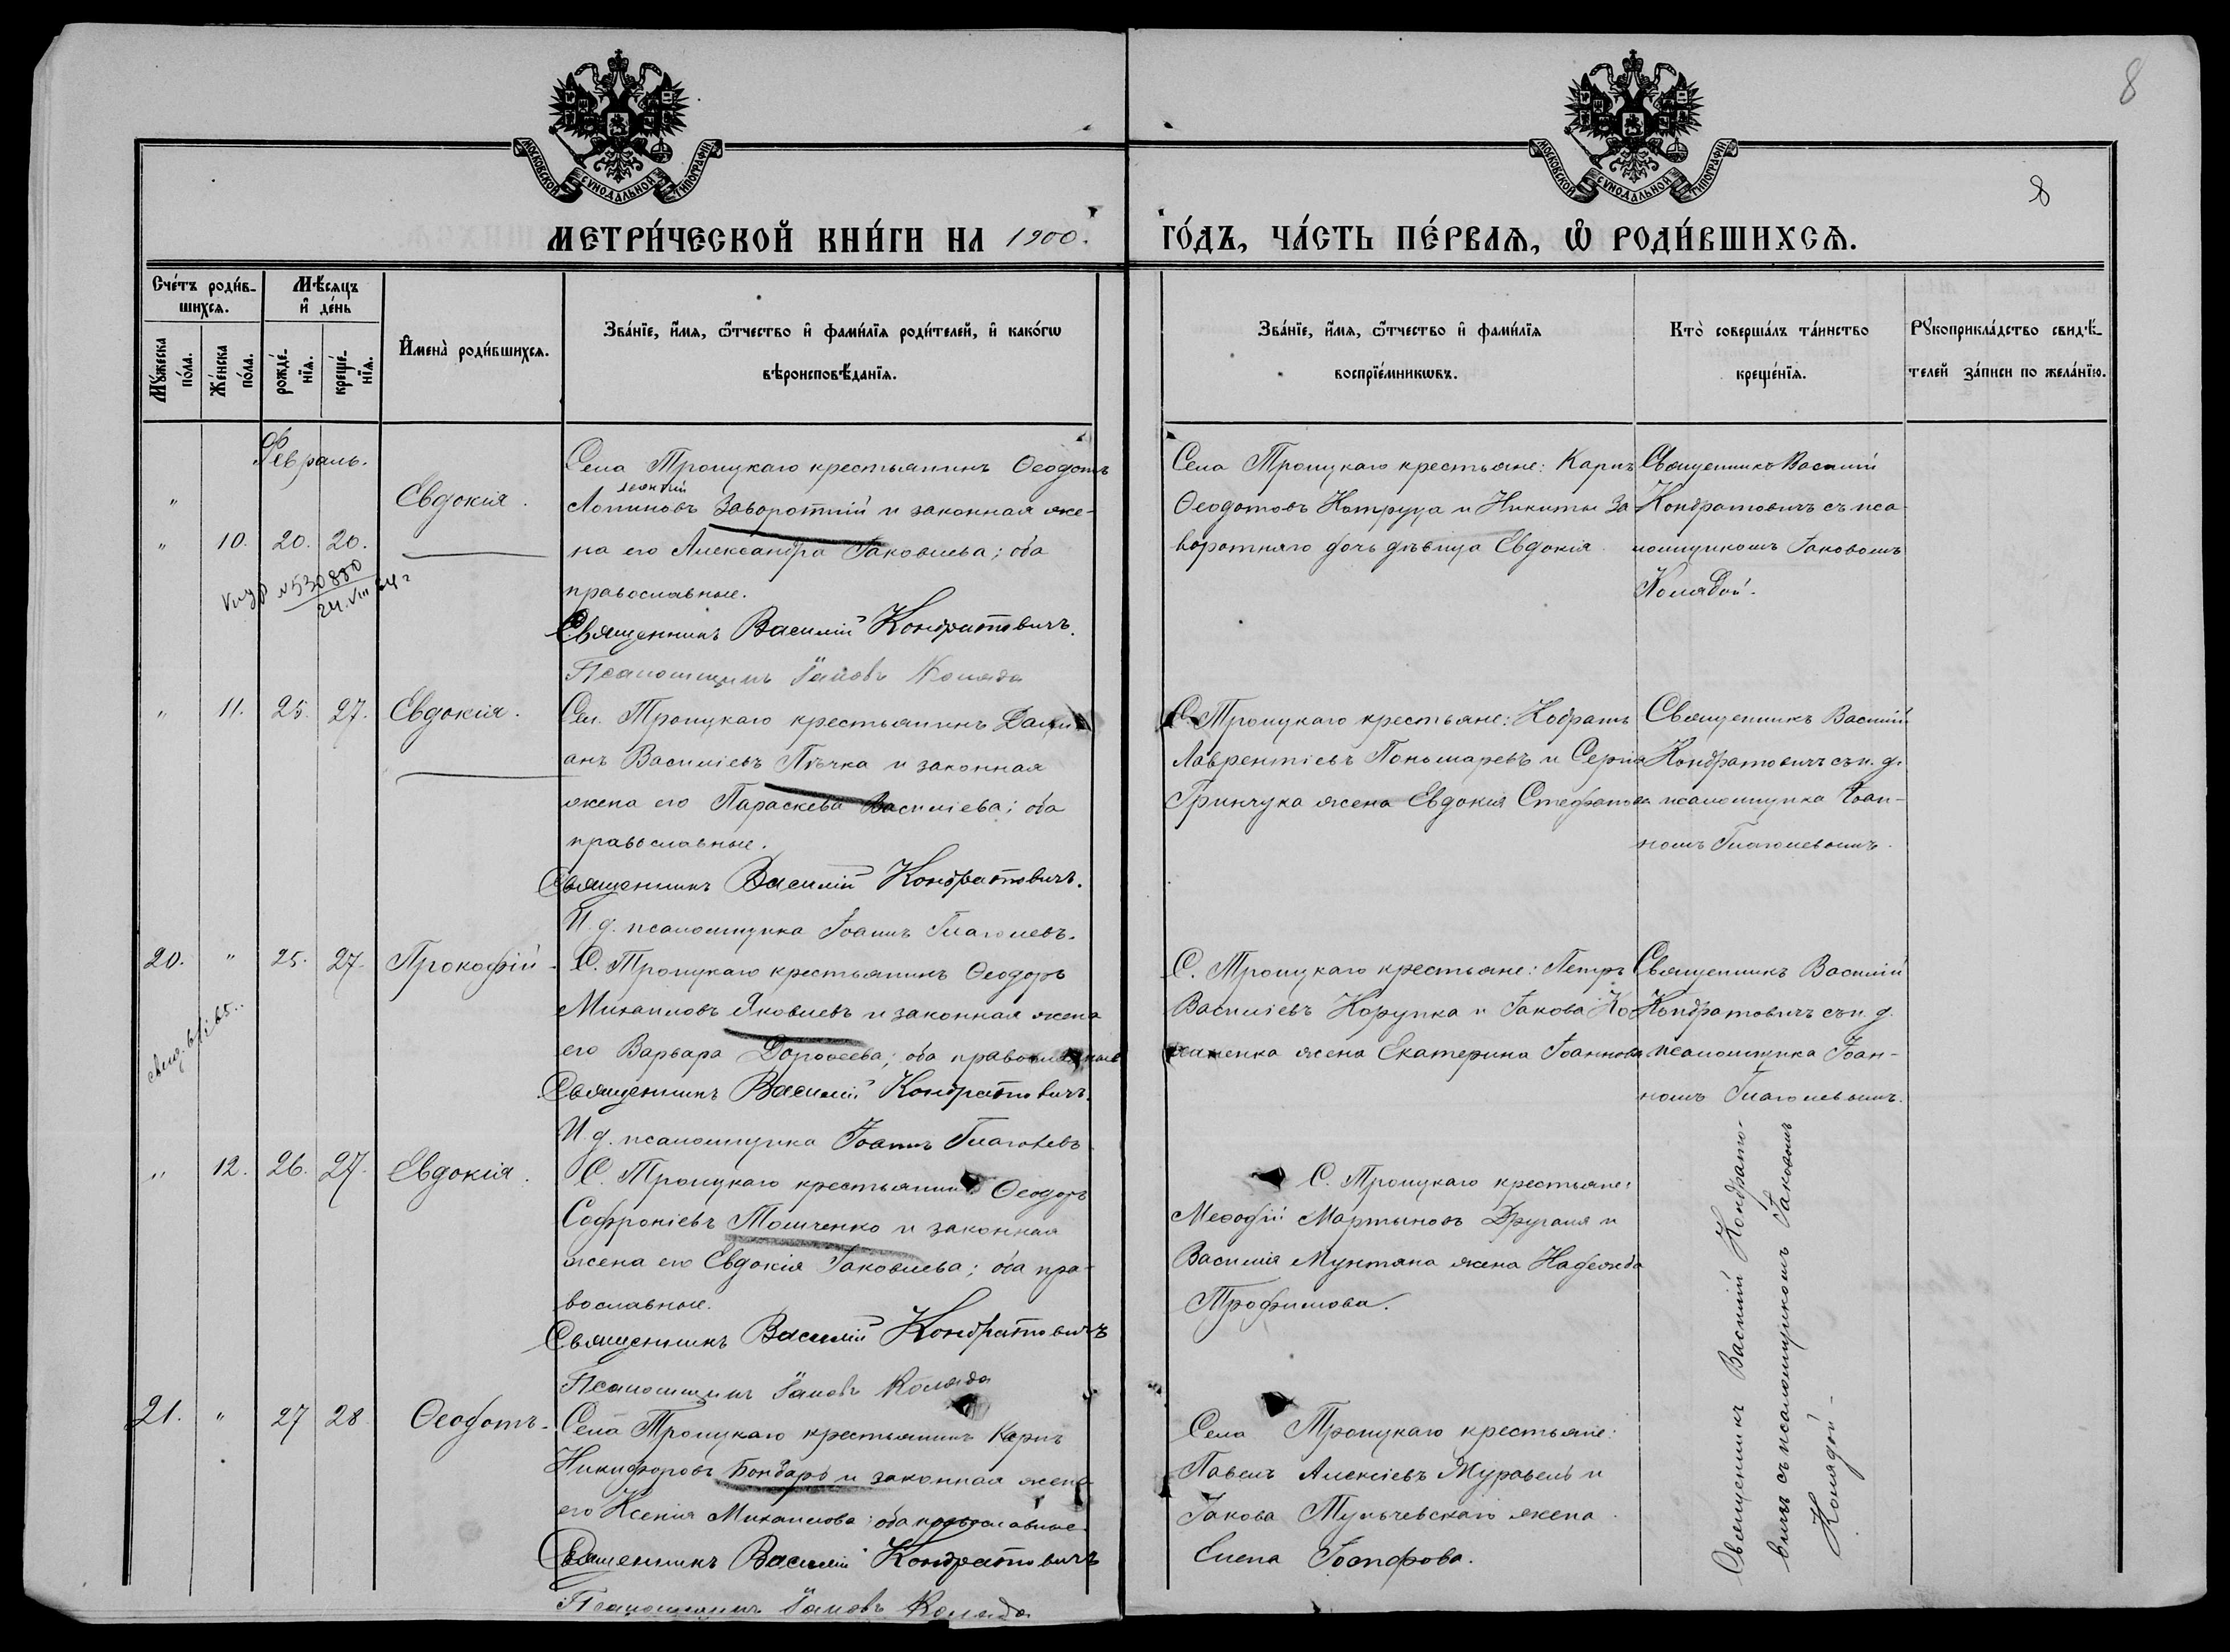 8
МОСКОВСКОЙ СѴНОДАЛЬНОЙ ТИПОГРАФІИ
МОСКОВСКОЙ СѴНОДАЛЬНОЙ ТИПОГРАФІИ
8
МЕТРИ́ЧЕСКОЙ КНИ́ГИ НА 1900.
ГО́ДЪ, ЧА́СТЬ ПЕ́РВАѦ, Ѽ РОДИ́ВШИХСѦ.
Сче́тъ роди́в-
шихсѧ.
Мꙋ́жеска по́ла.
Же́нска по́ла.
Мѣ́сѧцъ
и҆ де́нь
рожде́-
нїѧ.
креще́-
нїѧ.
И҆мена̀ роди́вшихсѧ.
Зва́нїе, и҆́мѧ, ѻ҆́тчество и҆ фами́лїѧ роди́телей, и҆ како́гѡ
вѣроисповѣ́данїѧ.
Зва́нїе, и҆́мѧ, ѻ҆́тчество и҆ фами́лїѧ
воспрїе́мникѡвъ.
Кто̀ соверша́лъ та́инство
креще́нїѧ.
Рꙋкоприкла́дство свидѣ́-
телей за́писи по жела́нїю.
Февраль.
"
" 10. 20. 20.
Евдокія.
№ 530880
24.VIII 64 г
Села Троицкаго крестьянинъ Ѳеодотъ
Логиновъ Заворотній и законная же-
на его Александра Іаковлева; оба
православные.
Священникъ Василій Кондратовичъ.
Псаломщикъ Іаковъ Коляда
Села Троицкаго крестьяне: Карпъ
Ѳеодотовъ Катруца и Никиты За
воротняго дочь дѣвица Евдокія.
Священникъ Василій
Кондратовичъ съ пса
ломщикомъ Іаковомъ
Колядой.
" 11. 25. 27. Евдокія.
Сел. Троицкаго крестьянинъ Дами
анъ Василіевъ Пѣчка и законная
жена его Параскева Василіева; оба
православные.
Священникъ Василій Кондратовичъ.
И. д. псаломщика Іоаннъ Глаголевъ.
С. Троицкаго крестьяне: Кодратъ
Лаврентіевъ Пономаревъ и Сергія
Гринчука жена Евдокія Стефанова
Священникъ Василій
Кондратовичъ съ и. д.
псаломщика Іоан-
номъ Глаголевымъ.
20. " 25. 27. Прокофій
С. Троицкаго крестьянинъ Ѳеодоръ
Михаиловъ Яковлевъ и законная жена
его Варвара Дороѳеева; оба православные
Священникъ Василій Кондратовичъ.
И. д. псаломщика Іоаннъ Глаголевъ
С. Троицкаго крестьяне: Петръ
Василіевъ Корупка и Іакова Ко
жена Екатерина Іоаннова
Священникъ Василій
Кондратовичъ съ и. д.
псаломщика Іоан-
номъ Глаголевымъ.
" 12. 26. 27. Евдокія.
С. Троицкаго крестьянинъ Ѳеодоръ
Софроніевъ Томченко и законная
жена его Евдокія Іаковлева; оба пра-
вославные.
Священникъ Василій Кондратовичъ
Псаломщикъ Іаковъ Коляда
С. Троицкаго крестьяне:
Меѳодій Мартыновъ Другаля и
Василія Мунтяна жена Надежда
Трофимова.
21. " 27 28 Ѳеодотъ.
Села Троицкаго крестьянинъ Карпъ
Никифоровъ Бондарь и законная жена
его Ксенія Михаилова; оба православные.
Священникъ Василій Кондратовичъ
Псаломщикъ Іаковъ Коляда
Села Троицкаго крестьяне:
Павелъ Алексіевъ Муравель и
Іакова Тульчевскаго жена
Елена Іосифова.
Священникъ Василій Кондрато-
вичъ съ псаломщикомъ Іаковомъ
Колядой-